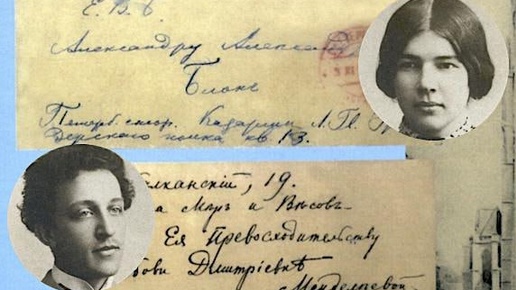 Е. В. Б.
Александру Алекса
Блокъ
Петерб. стор. Казармы Л. Гв. Гр
полка кв. 13.
лканскій, 19.
а Мѣръ и Вѣсовъ
Ея Превосходительству
бови Дмитріевнѣ
Менделѣевой